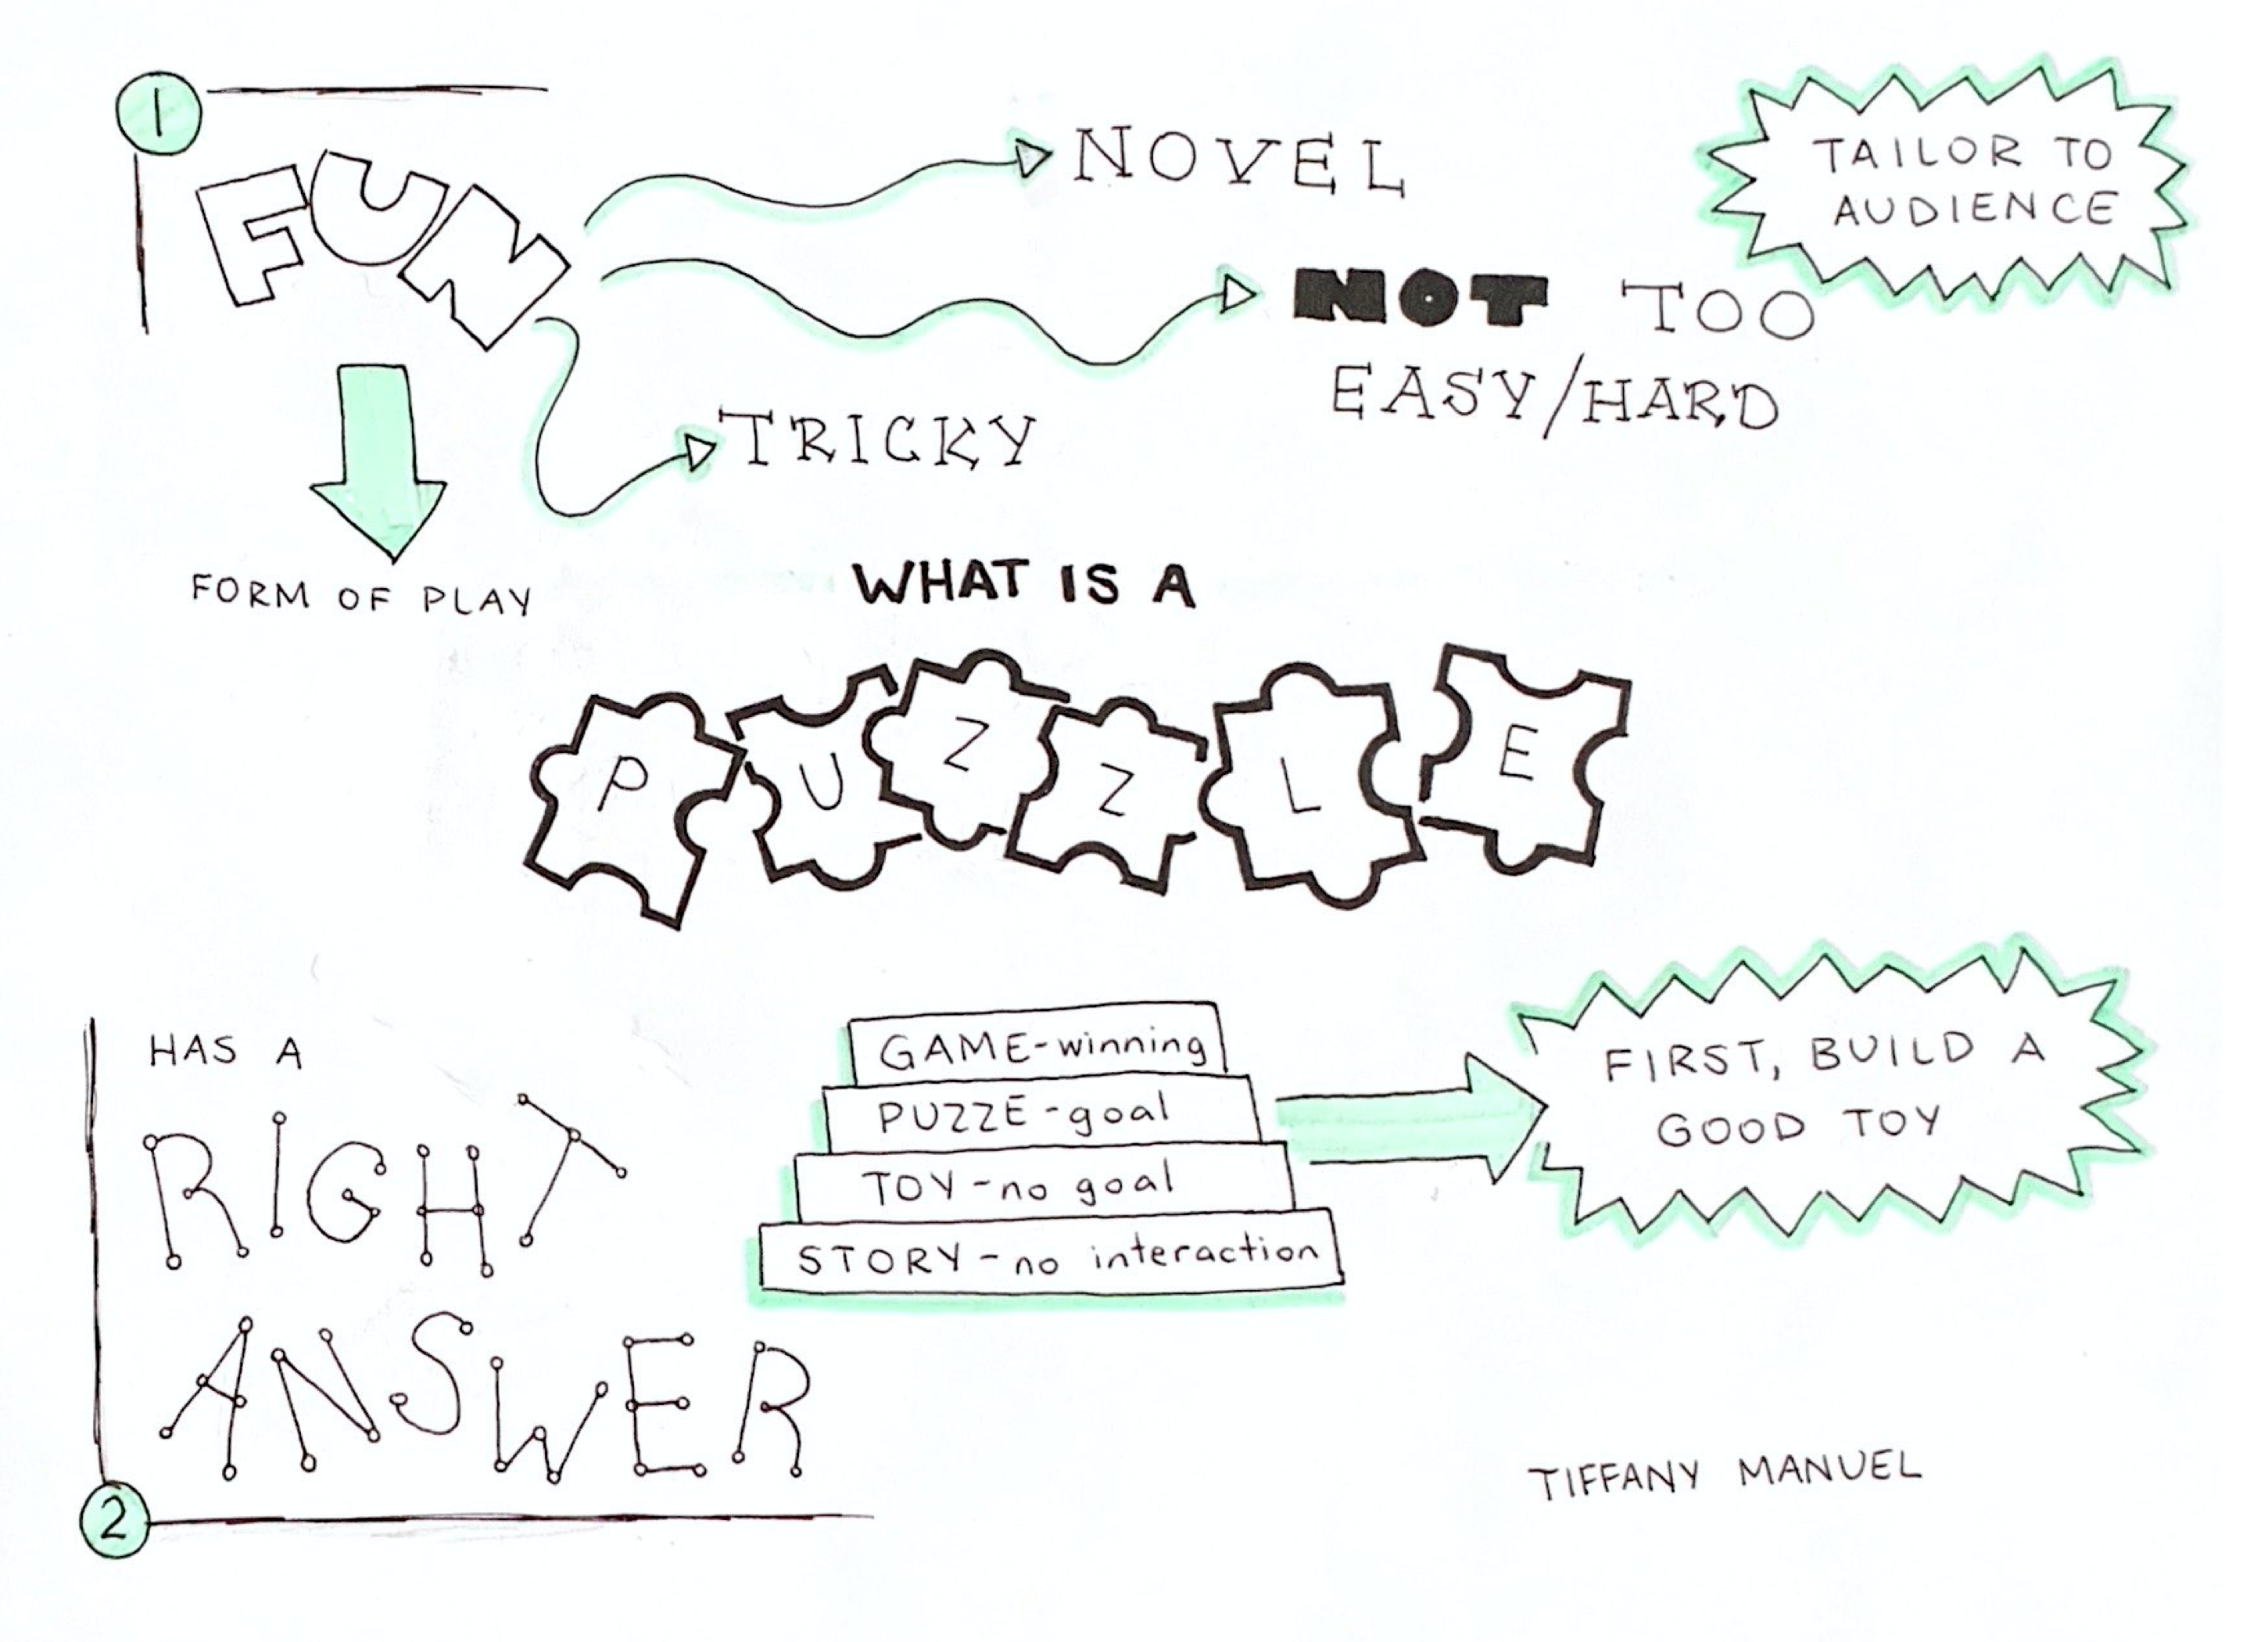 1
FUN
NOVEL
TAILOR TO
AUDIENCE
NOT TOO
EASY/HARD
TRICKY
FORM OF PLAY
WHAT IS A
PUZZLE
HAS A
RIGHT
ANSWER
2
GAME-winning
PUZZE-goal
TOY-no goal
STORY-no interaction
FIRST, BUILD A
GOOD TOY
TIFFANY MANUEL